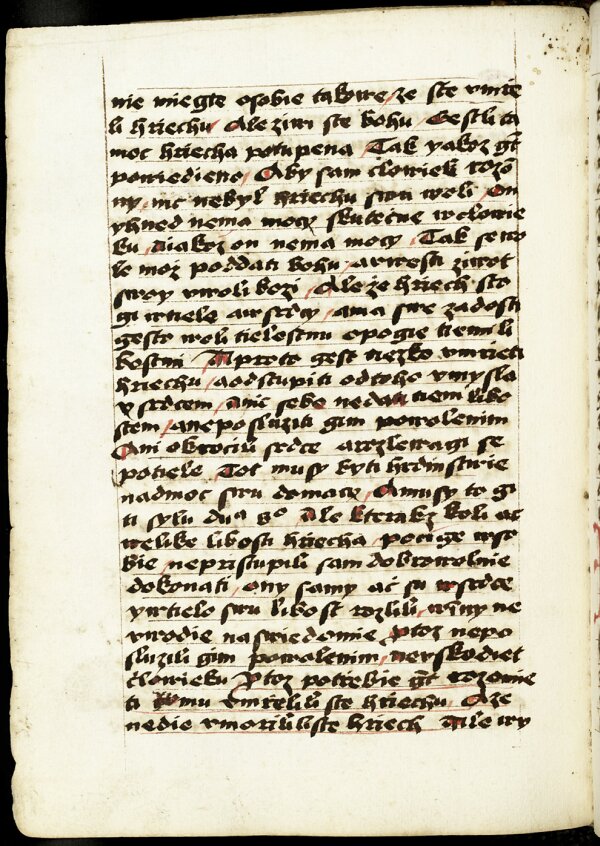 nie miegte osobie takwe / ze ste vmrie
li hriechu / Ale ziwi ste bohu / Gestli ta
moc hriecha potupena / Tak yakoz gt
powiedieno / Aby sam clowiek rozo
ny / nic nebyl hriechu swu woli / on
yhned nema moczy skutecne wclowie
ku / A iakoz on nema moczy / Tak sewo
le moz poddati bohu / a westi ziwot
swoy wwoli bozi / Ale ze hriech sto
gi wtiele a wsrdcy / a ma swe zadosti
gesto woli tielestnu epogie tiemi li
bostmi / A proto gest tiezko vmrieti
hriechu / a odstupiti odtoho vmysla
y srdcem / A nic sebe nedati tiem libo
stem / a neposluziti gim powolenim
Ani obrociti srdce a rzlewagi se
potiele / Tot musy byti hrdinstwie
nadmoc swu domacz / A musy to gi
ti sylu dua so / Ale kterakz koli ac
welike libosti hriecha / pocige wso
bie / nepristupili sam dobrowolnie
dokonati / ony samy ac su wsrdce
y wtielo swu libost rozlili / winy ne
vwodie naswiedomie / ptoz nepo
sluzili gim powolenim / nevskodiet
clowieku / Ptoz potrebie gt rozomie
ti komu vmrelili ste hriechu / A ze
nedie vmorililiste hriech / Ale wy